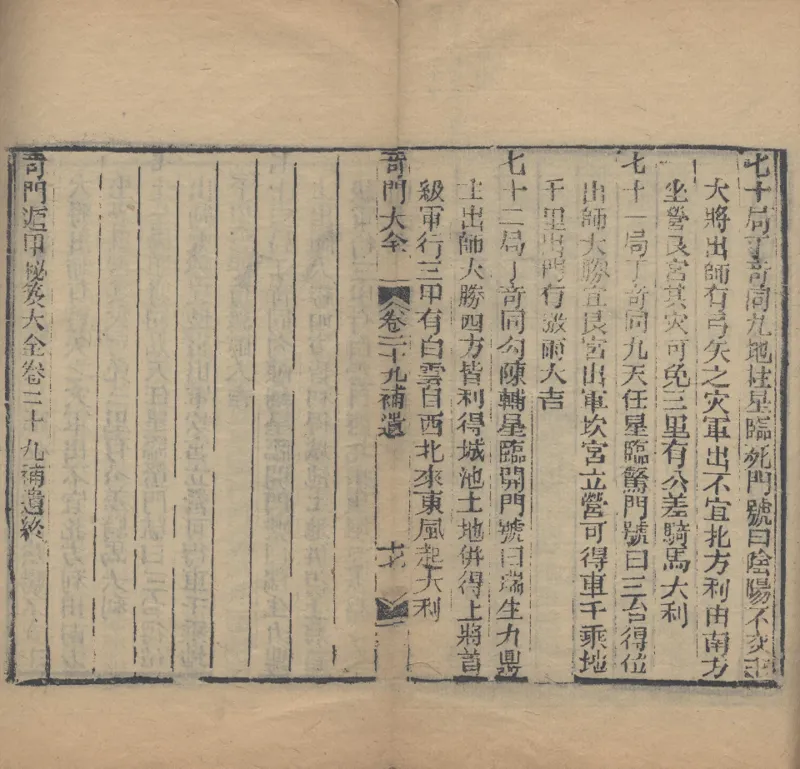 七十局丁奇同九地柱星臨死門號曰陰陽不交主
大將出師有弓矢之灾軍出不宜北方利由南方
坐營艮宮其灾可免三里有公差騎馬大利
七十一局丁奇同九天任星臨驚門號曰三台得位
出師大勝宜艮宮出軍坎宮立營可得車千乘地
千里出門有微雨大吉
七十二局丁奇同勾陳輔星臨開門號曰瑞生九鼎
主出師大勝四方皆利得城池土地併得上將首
級軍行三甲有白雲自西北來東風起大利
奇門大全 卷二十九補遺
奇門遁甲秘笈大全卷二十九補遺終